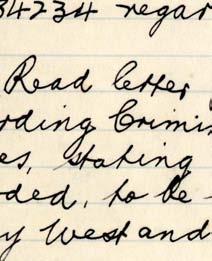 34234 regar
Read letter
rding Crimin
es, stating
ded, to be
y West and